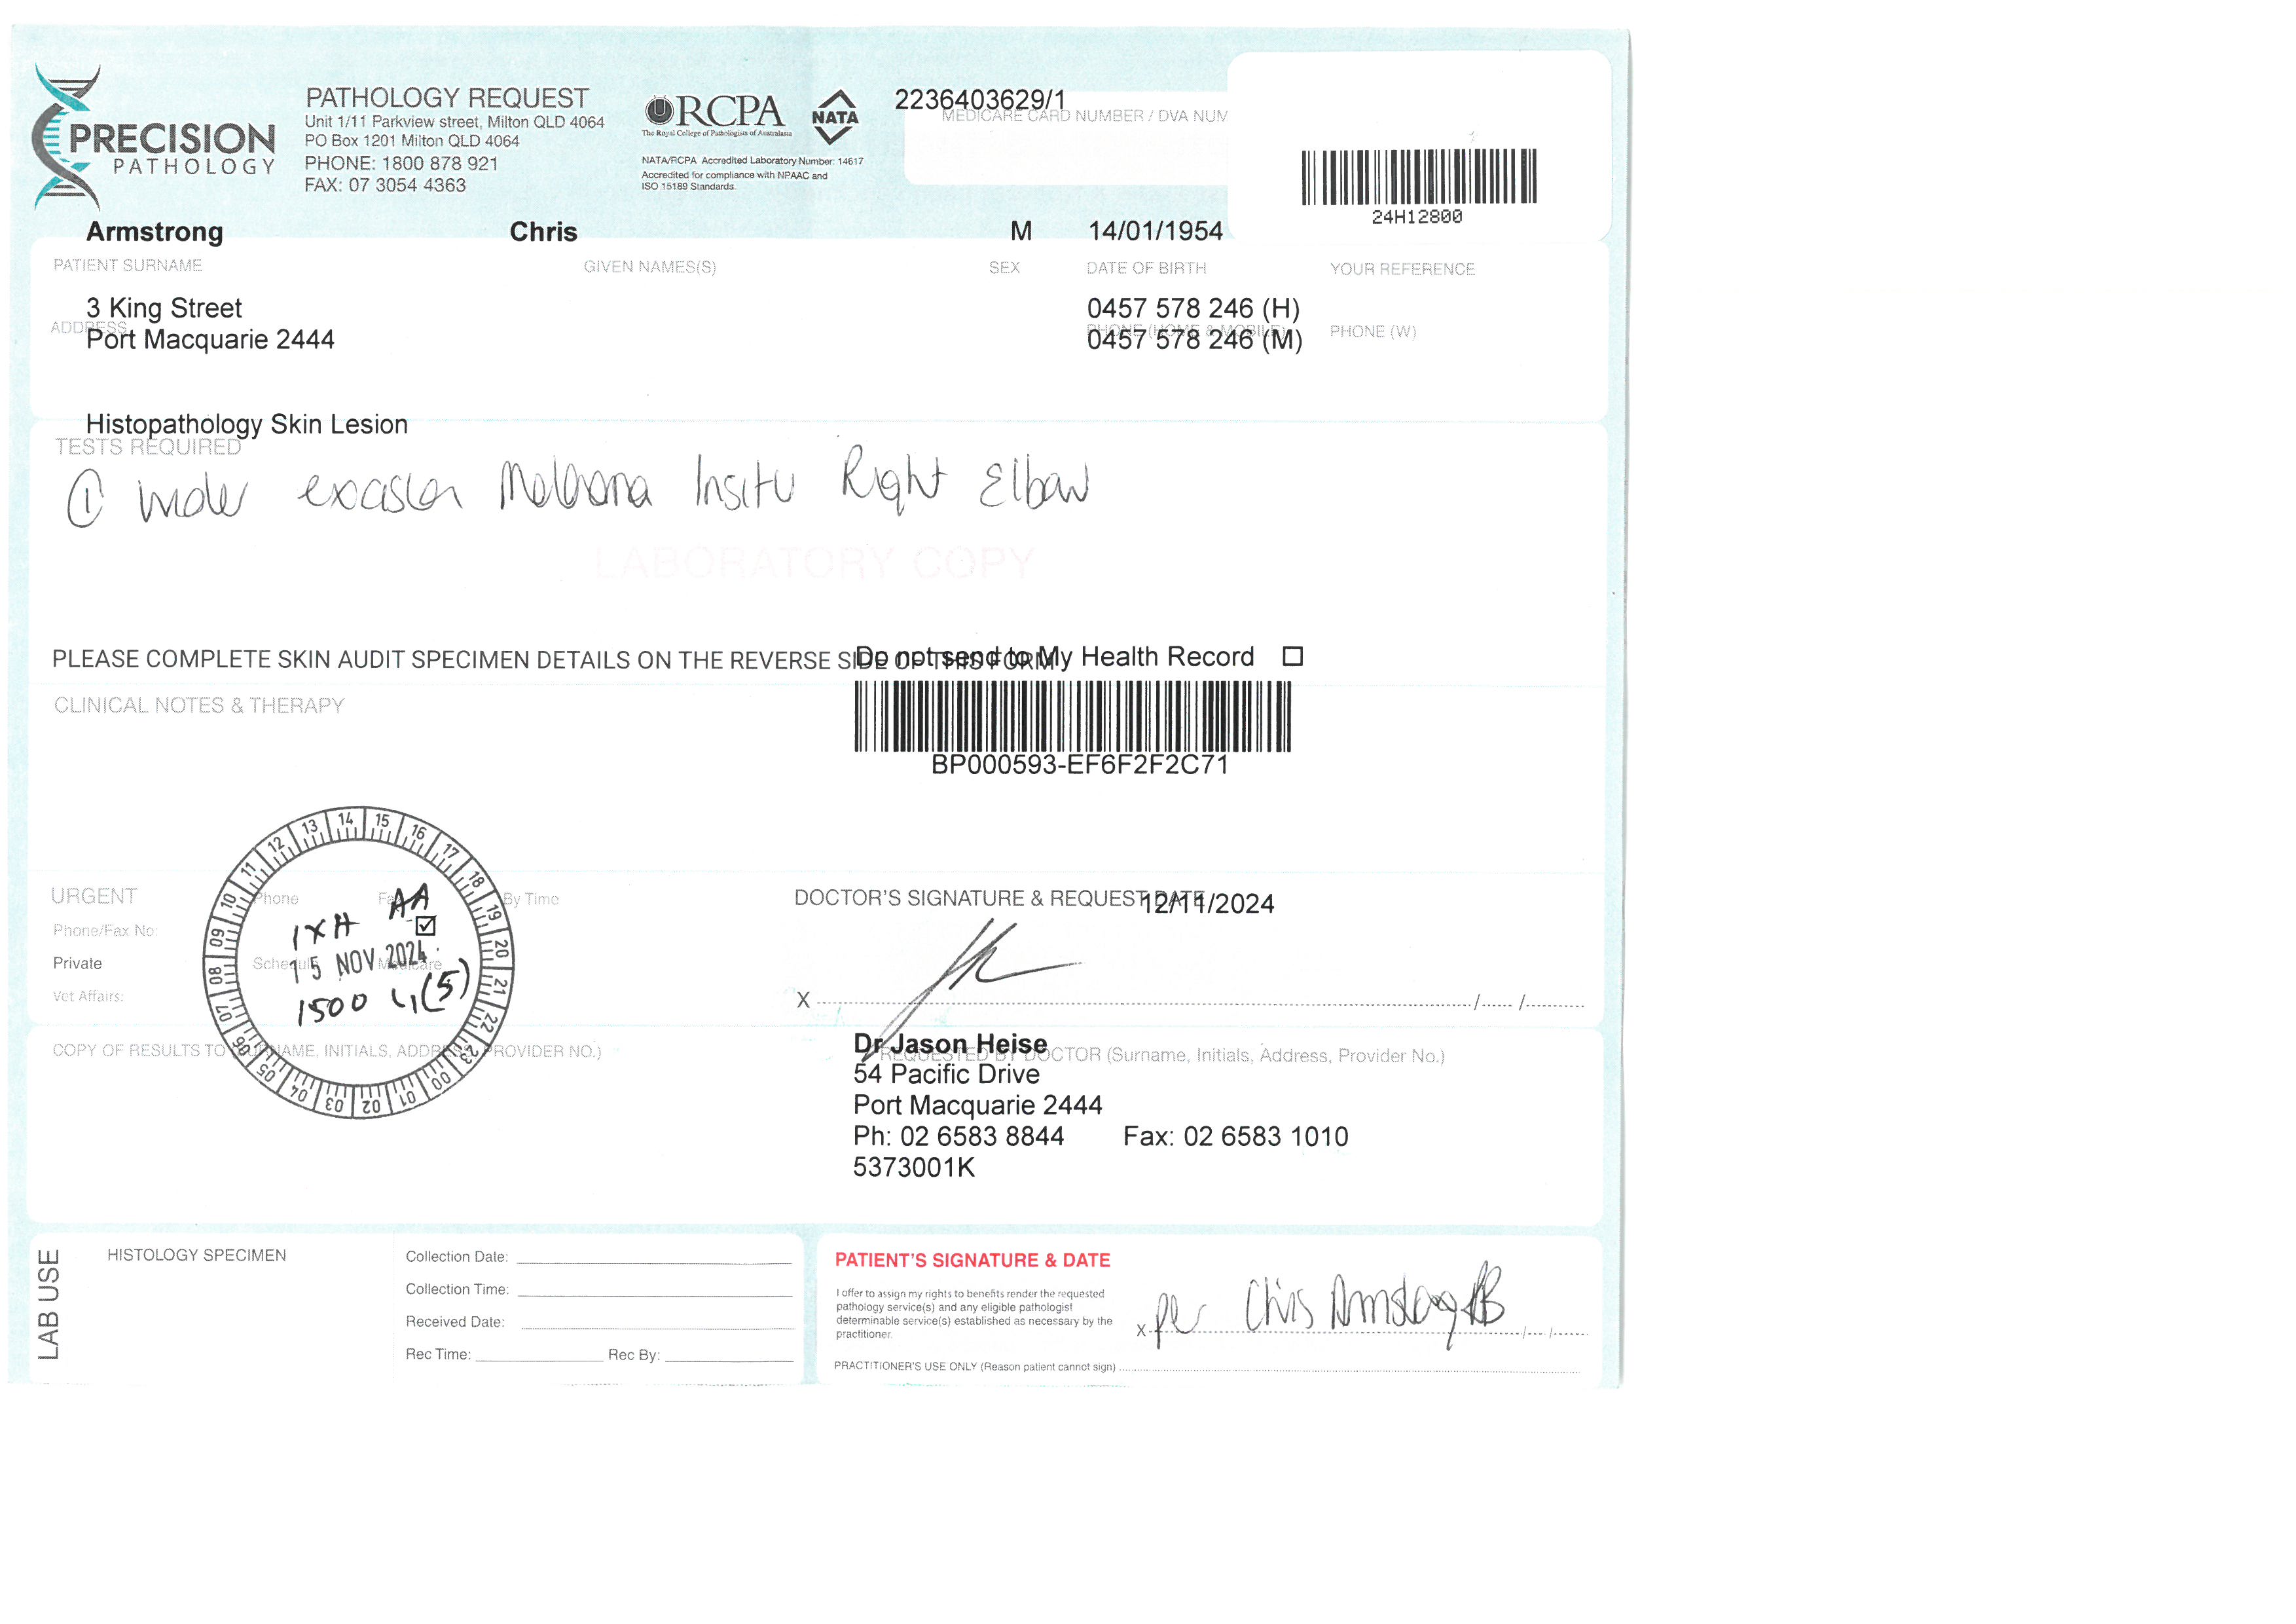 PRECISION
PATHOLOGY
PATHOLOGY REQUEST
Unit 1/11 Parkview street, Milton QLD 4064
PO Box 1201 Milton QLD 4064
PHONE: 1800 878 921
FAX: 07 3054 4363
RCPA
The Royal College of Pathologists of Australasia
NATA
NATA/RCPA Accredited Laboratory Number: 14617
Accredited for compliance with NPAAC and
ISO 15189 Standards.
2236403629/1
MEDICARE CARD NUMBER / DVA NUM
24H12800
Armstrong Chris M 14/01/1954
PATIENT SURNAME GIVEN NAMES(S) SEX DATE OF BIRTH YOUR REFERENCE
3 King Street 0457 578 246 (H)
ADDRESS PHONE (HOME & MOBILE) PHONE (W)
Port Macquarie 2444 0457 578 246 (M)
Histopathology Skin Lesion
TESTS REQUIRED
① wider excision Melanoma Insitu Right Elbow
LABORATORY COPY
PLEASE COMPLETE SKIN AUDIT SPECIMEN DETAILS ON THE REVERSE SIDE OF THIS FORM
Do not send to My Health Record ☐
CLINICAL NOTES & THERAPY
BP000593-EF6F2F2C71
13 14 15 16 17 18 19 20 21 22 23 00 01 02 03 04 05 06 07 08 09 10 11 12
URGENT Phone Fax By Time
Phone/Fax No:
Private Schedule Medicare
Vet Affairs:
1XH AA
☑
15 NOV 2024
1500 (5)
DOCTOR'S SIGNATURE & REQUEST DATE 12/11/2024
X / /
COPY OF RESULTS TO (SURNAME, INITIALS, ADDRESS, PROVIDER NO.)
Dr Jason Heise
REQUESTED BY DOCTOR (Surname, Initials, Address, Provider No.)
54 Pacific Drive
Port Macquarie 2444
Ph: 02 6583 8844 Fax: 02 6583 1010
5373001K
LAB USE
HISTOLOGY SPECIMEN
Collection Date:
Collection Time:
Received Date:
Rec Time: Rec By:
PATIENT'S SIGNATURE & DATE
I offer to assign my rights to benefits render the requested
pathology service(s) and any eligible pathologist
determinable service(s) established as necessary by the
practitioner.
x per Chris Armstrong / /
PRACTITIONER'S USE ONLY (Reason patient cannot sign)